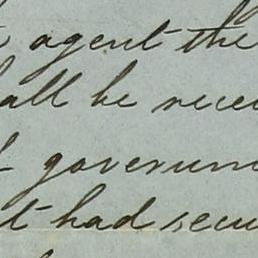 agent the
all be recei
governm
t had secu